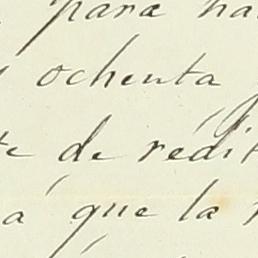 para ha
ochenta
te de rédit
a que la